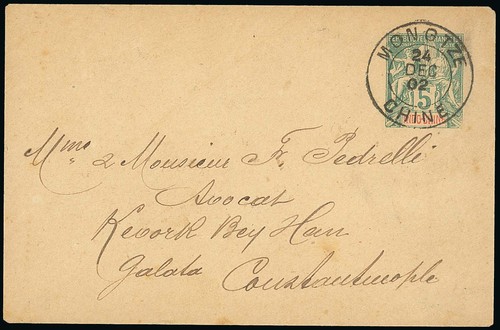 MONGTZE
24
DEC
02
CHINE
5
INDO-CHINE
Mme & Monsieur Fr. Pedrelli
Avocat
Kevork Bey Han
Galata Constantinople